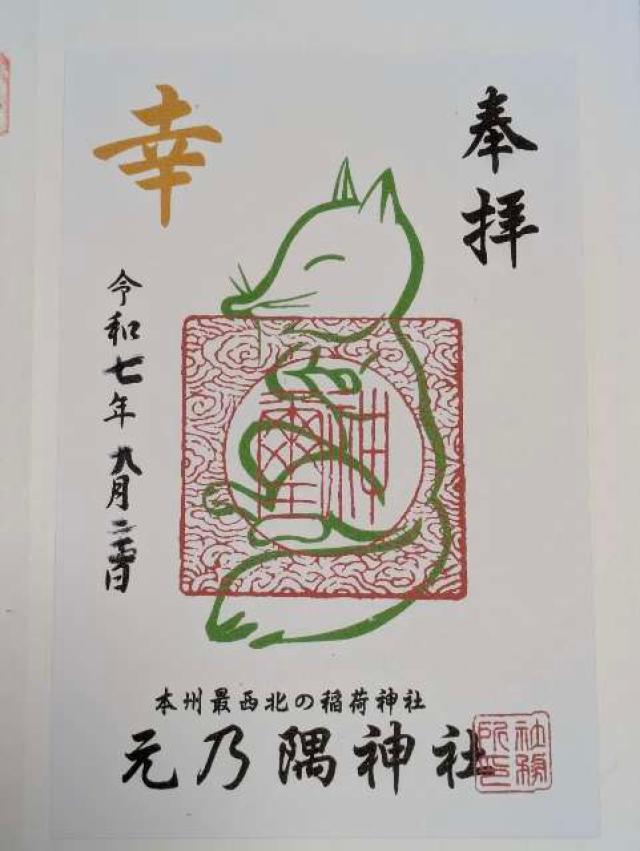 奉拝
幸
令和七年九月二
本州最西北の稲荷神社
元乃隅神社
社務
所印